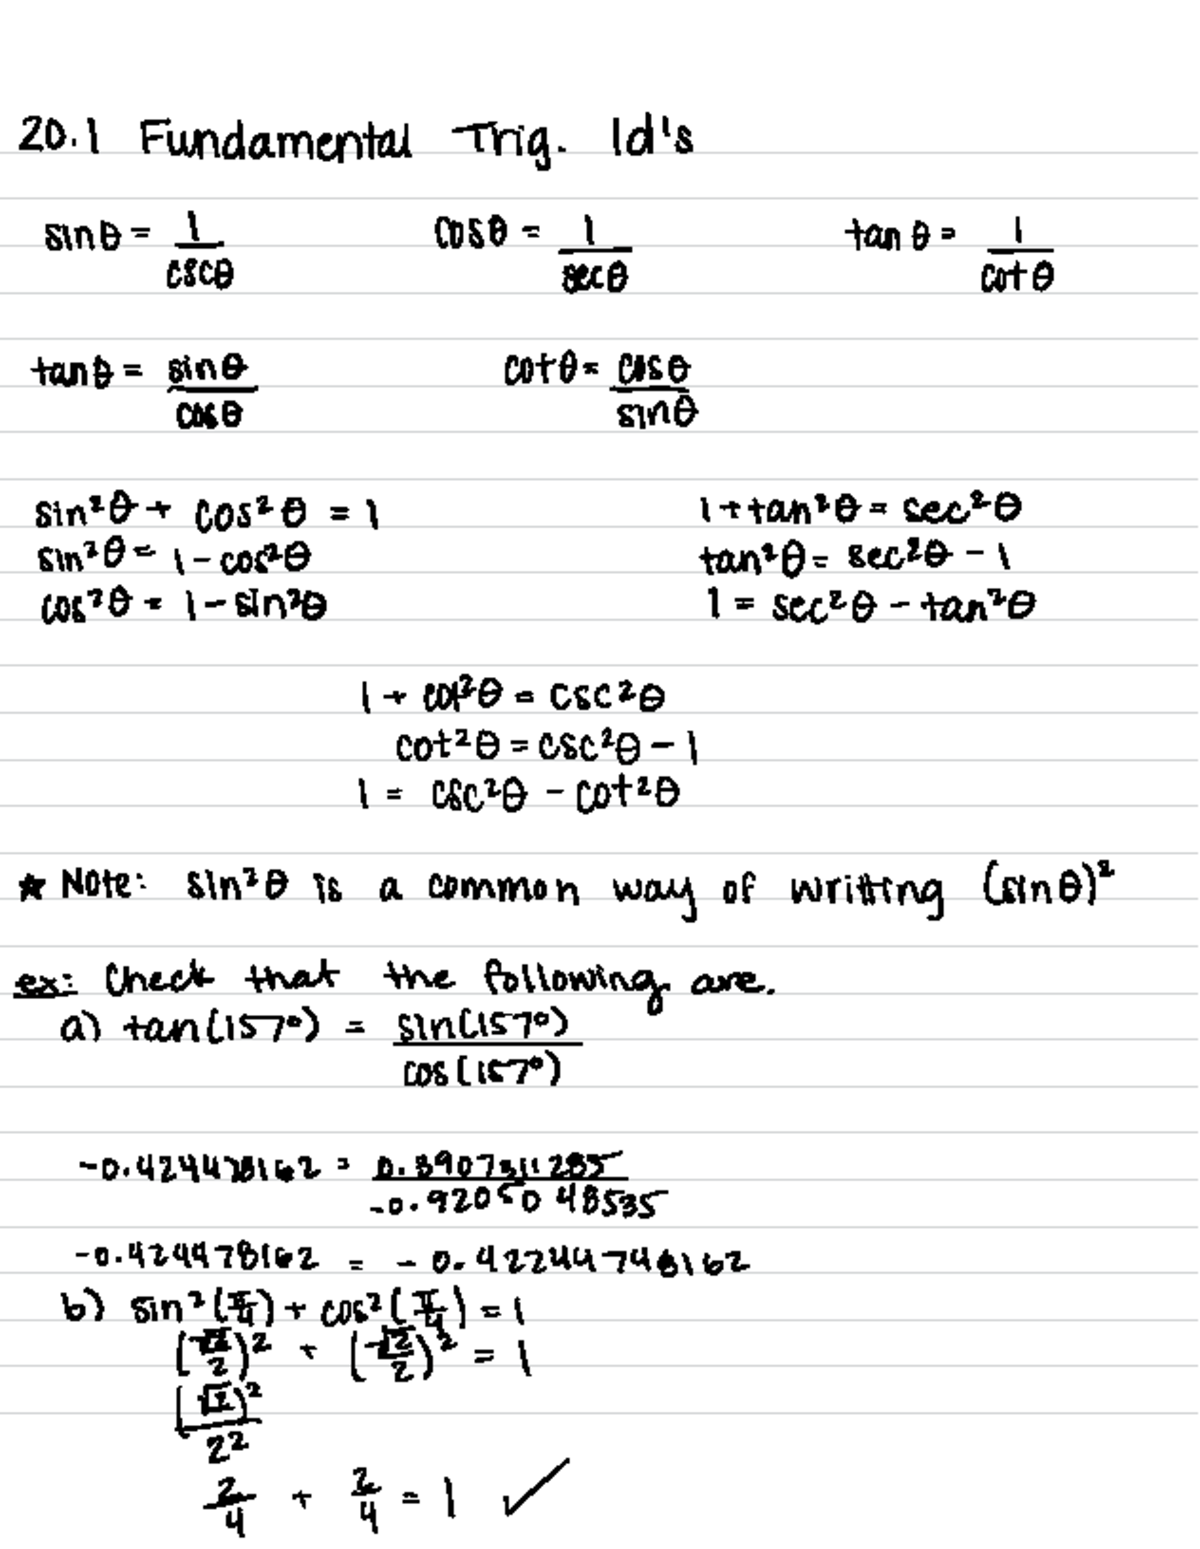 20.1 Fundamental Trig. Id's
sinθ = 1/cscθ   cosθ = 1/secθ   tanθ = 1/cotθ
tanθ = sinθ/cosθ   cotθ = cosθ/sinθ
sin²θ + cos²θ = 1   1 + tan²θ = sec²θ
sin²θ = 1 - cos²θ   tan²θ = sec²θ - 1
cos²θ = 1 - sin²θ   1 = sec²θ - tan²θ
1 + cot²θ = csc²θ
cot²θ = csc²θ - 1
1 = csc²θ - cot²θ
★ Note: sin²θ is a common way of writting (sinθ)²
ex: Check that the following are.
a) tan(157°) = sin(157°)/cos(157°)
= 0.3907311285/-0.9205048535
-0.424478162 = -0.42244748162
b) sin²(π/4) + cos²(π/4) = 1
(√2/2)² + (√2/2)² = 1
(√2)²/2²
2/4 + 2/4 = 1 ✓